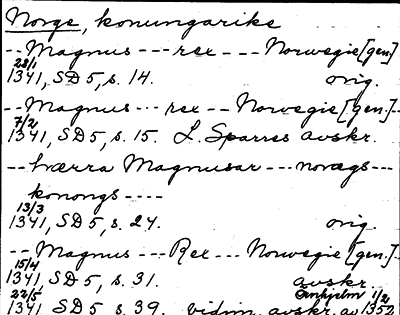 Norge, konungarike
--- Magnus --- rex --- Norwegie [gen]
28/1
1341, SD 5, s. 14. orig.
-- Magnus --- rex -- Norwegie [gen.] --
7/2
1341, SD 5, s. 15. L. Sparres avskr.
--- hærra Magnusar --- noregs ---
konongs ----
13/3
1341, SD 5, s. 27. orig.
-- Magnus --- Rex --- Norwegie [gen.] --
15/4
1341, SD 5, s. 31. avskr.
22/5 1/2
1341 SD 5, s. 39. vidim. avskr. av 1352